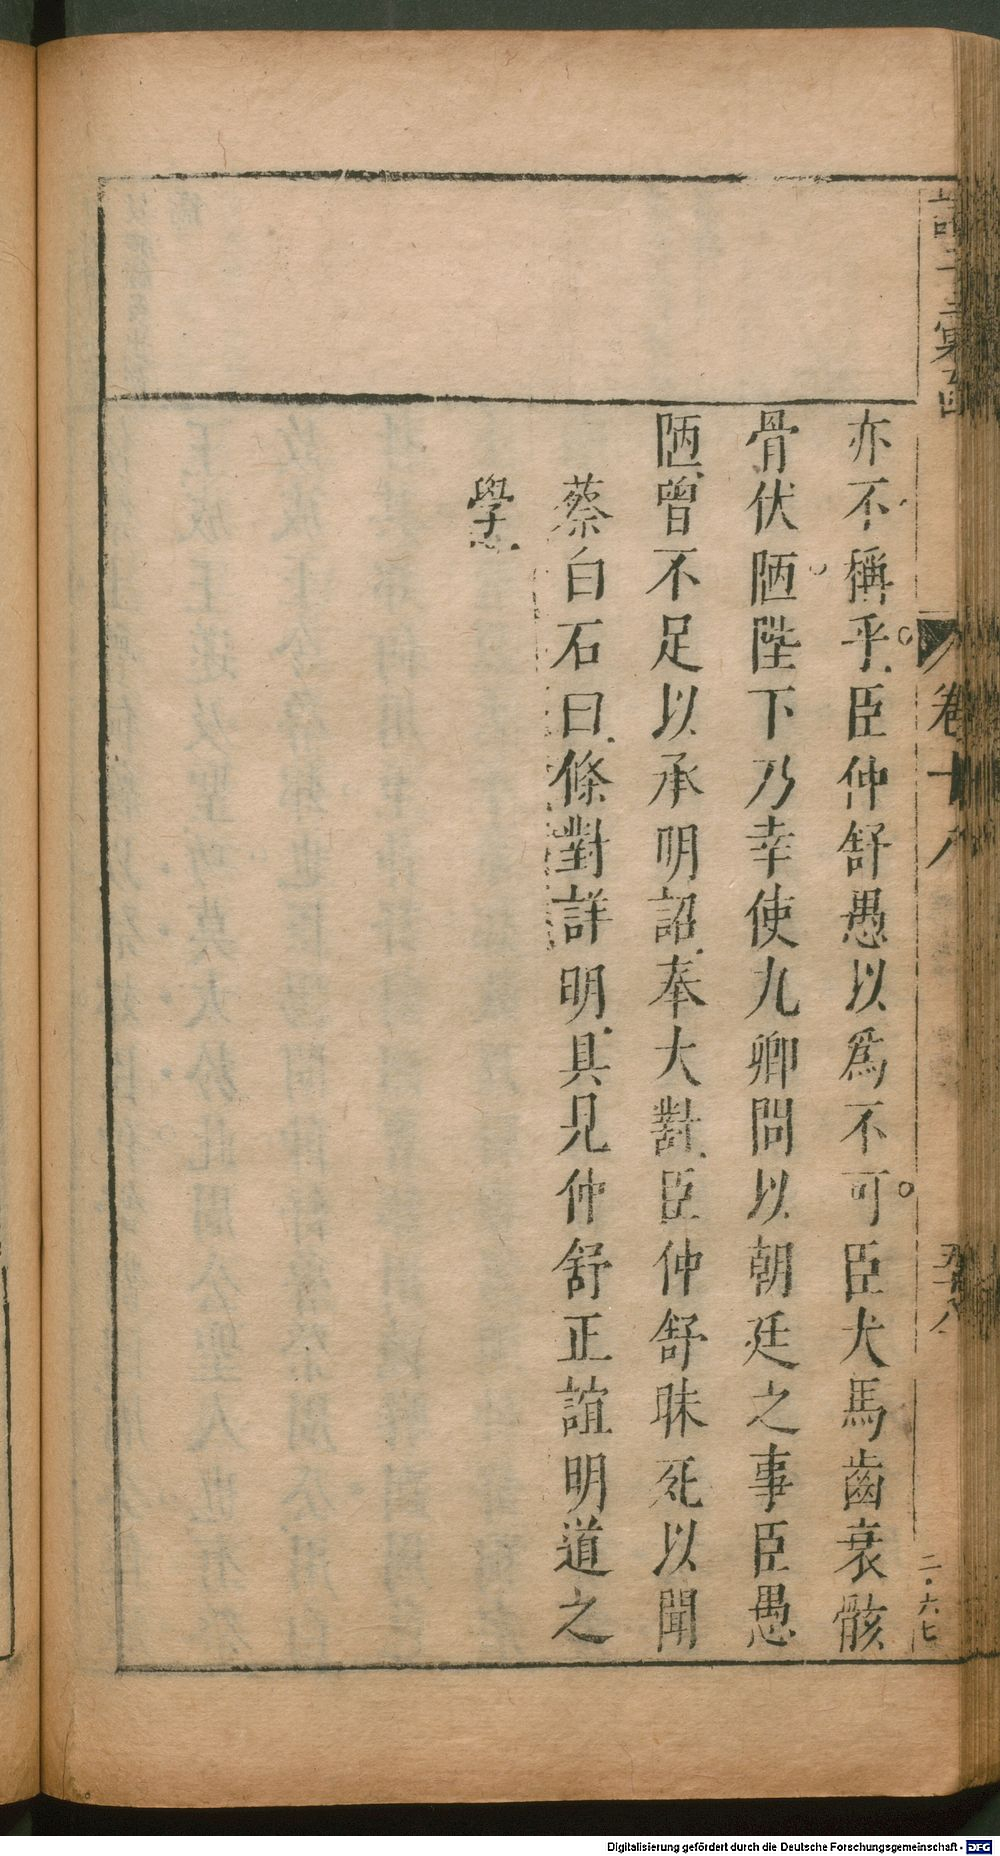 卷十八
五十八
二·六七
亦不稱乎臣仲舒愚以爲不可臣犬馬齒衰骸
骨伏陋陛下乃幸使九卿問以朝廷之事臣愚
陋曾不足以承明詔奉大對臣仲舒昧死以聞
蔡白石曰條對詳明具見仲舒正誼明道之
學
Digitalisierung gefördert durch die Deutsche Forschungsgemeinschaft - DFG